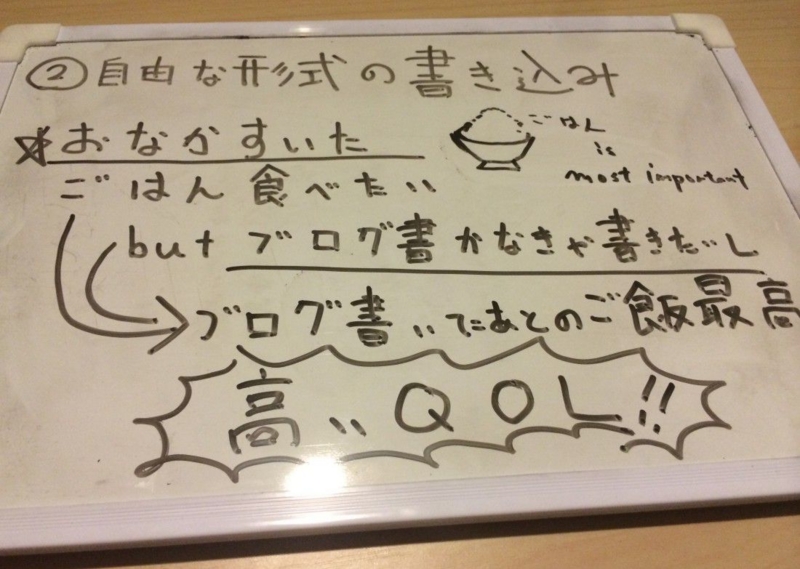 ②自由な形式の書き込み
☆おなかすいた
ごはん
is
most important
ごはん食べたい
but ブログ書かなきゃ書きたいし
ブログ書いたあとのご飯最高
高いQOL!!